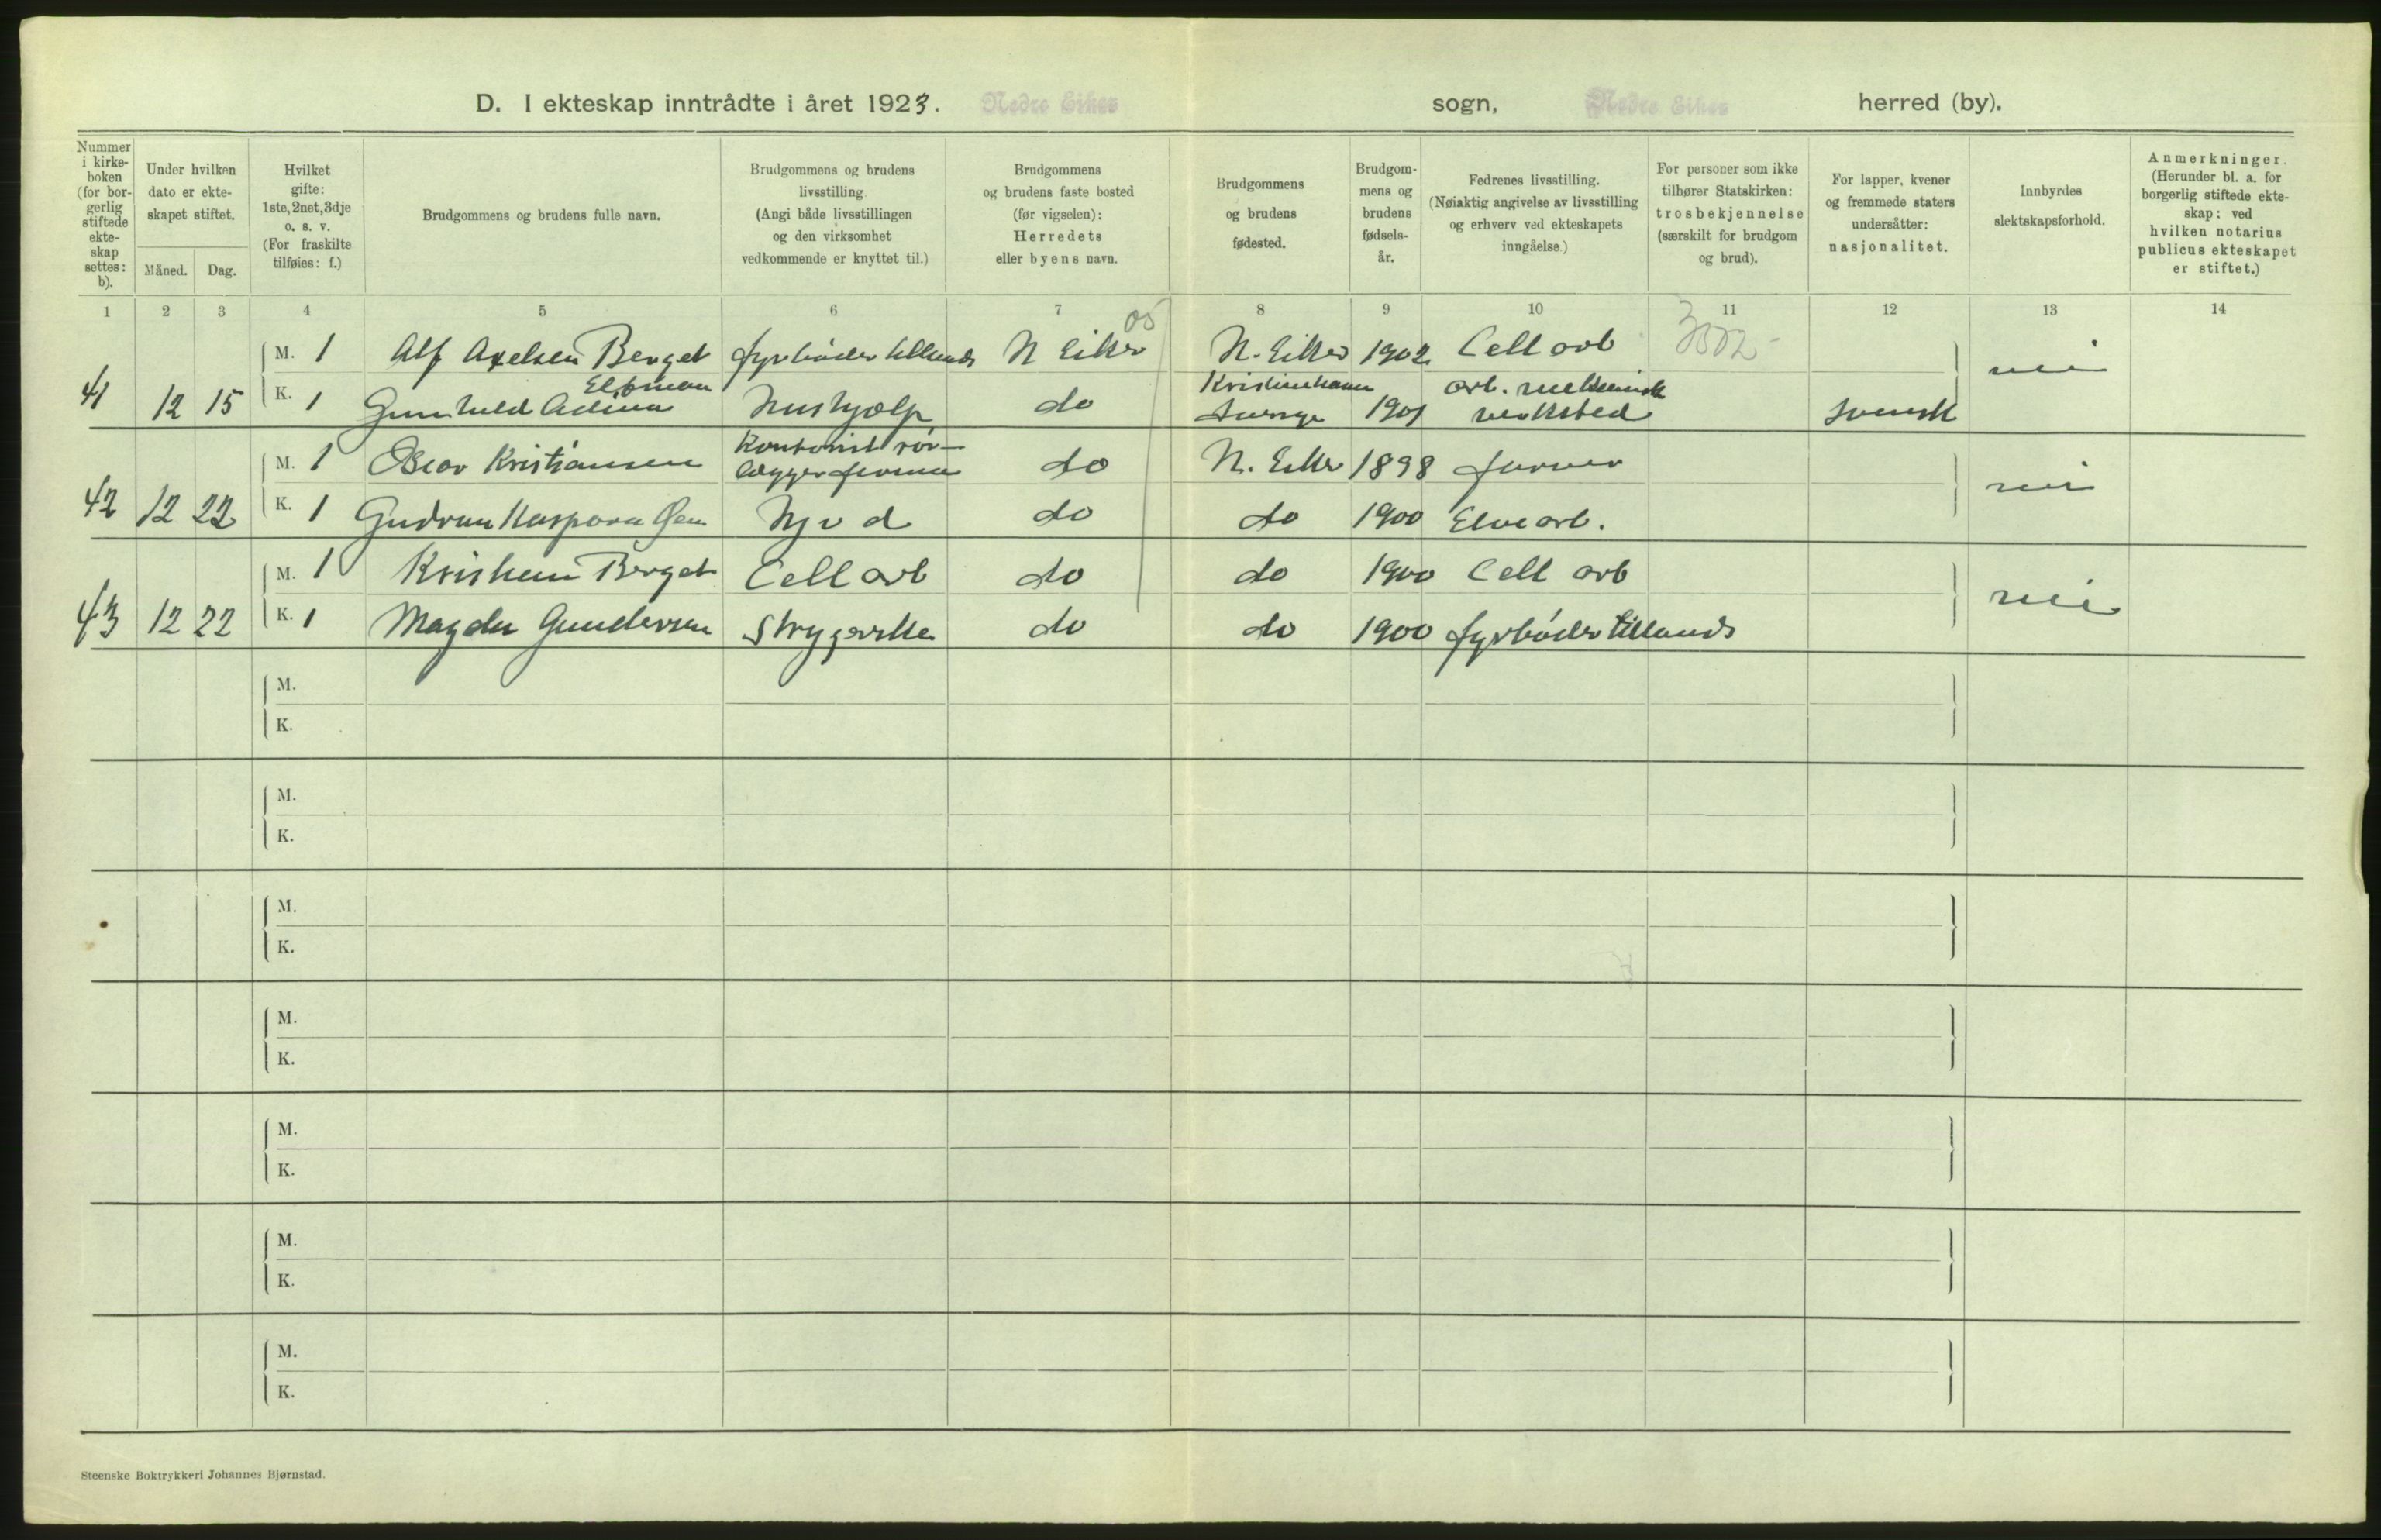 D. I ekteskap inntrådte i året 1923. Nedre Eiker sogn, Nedre Eiker herred (by).
Nummer
i kirke-
boken
(for bor-
gerlig
stiftede
ekte-
skap
settes:
b).
Under hvilken
dato er ekte-
skapet stiftet.
Måned. Dag.
Hvilket
gifte:
1ste, 2net, 3dje
o. s. v.
(For fraskilte
tilføies: f.)
Brudgommens og brudens fulle navn.
Brudgommens og brudens
livsstilling.
(Angi både livsstillingen
og den virksomhet
vedkommende er knyttet til.)
Brudgommens
og brudens faste bosted
(før vigselen):
Herredets
eller byens navn.
Brudgommens
og brudens
fødested.
Brudgom-
mens og
brudens
fødsels-
år.
Fedrenes livsstilling.
(Nøiaktig angivelse av livsstilling
og erhverv ved ekteskapets
inngåelse.)
For personer som ikke
tilhører Statskirken:
trosbekjennelse
(særskilt for brudgom
og brud).
For lapper, kvener
og fremmede staters
undersåtter:
nasjonalitet.
Innbyrdes
slektskapsforhold.
Anmerkninger.
(Herunder bl. a. for
borgerlig stiftede ekte-
skap: ved
hvilken notarius
publicus ekteskapet
er stiftet.)
1 2 3 4 5 6 7 8 9 10 11 12 13 14
M. 1 Alf Axelsen Berget fyrbøder N Eiker N. Eiker 1902 Cell arb nei
Kristinehamn arb. mekanisk
41 12 15 K. 1 Gunhild Adina Hushjælp do Sverige 1901 verksted svensk
Kontorist rør-
M. 1 Oscar Kristiansen lægger firma do N. Eiker 1898 nei
42 12 22 K. 1 Gudrun Kaspara Hj v d do do 1900 Elvearb.
M. 1 Kristian Berget Cell arb do do 1900 Cell arb nei
43 12 22 K. 1 Magda Gundersen Strygerske do do 1900 fyrbøder
M.
K.
M.
K.
M.
K.
M.
K.
M.
K.
M.
K.
M.
K.
Steenske Boktrykkeri Johannes Bjørnstad.